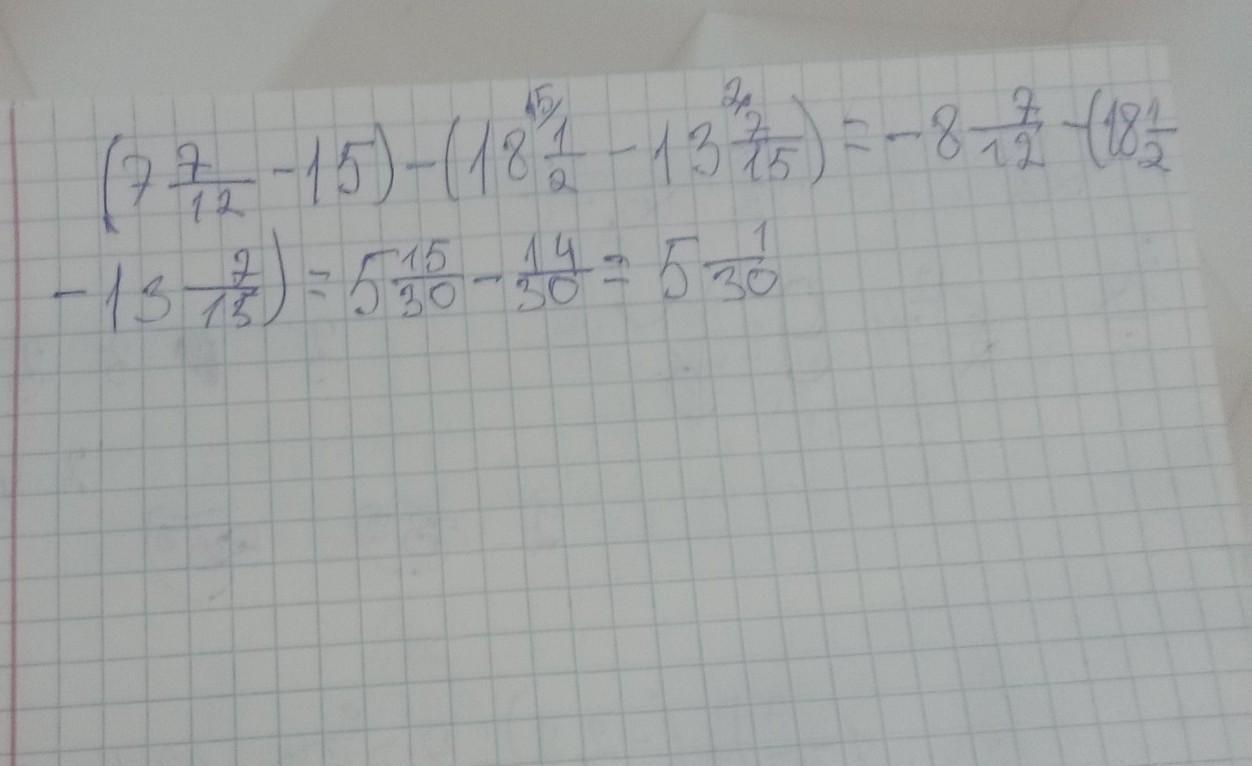 (7 7/12 - 15) - (18 15/ 1/2 - 13 2/ 7/15) = - 8 7/12 - (18 1/2
- 13 7/15) = 5 15/30 - 14/30 = 5 1/30